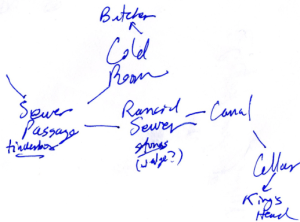 Butcher
Cold
Room
Sewer
Passage
tinderbox
Rancid
Sewer
stones
(wedge?)
Canal
Cellar
King's
Head